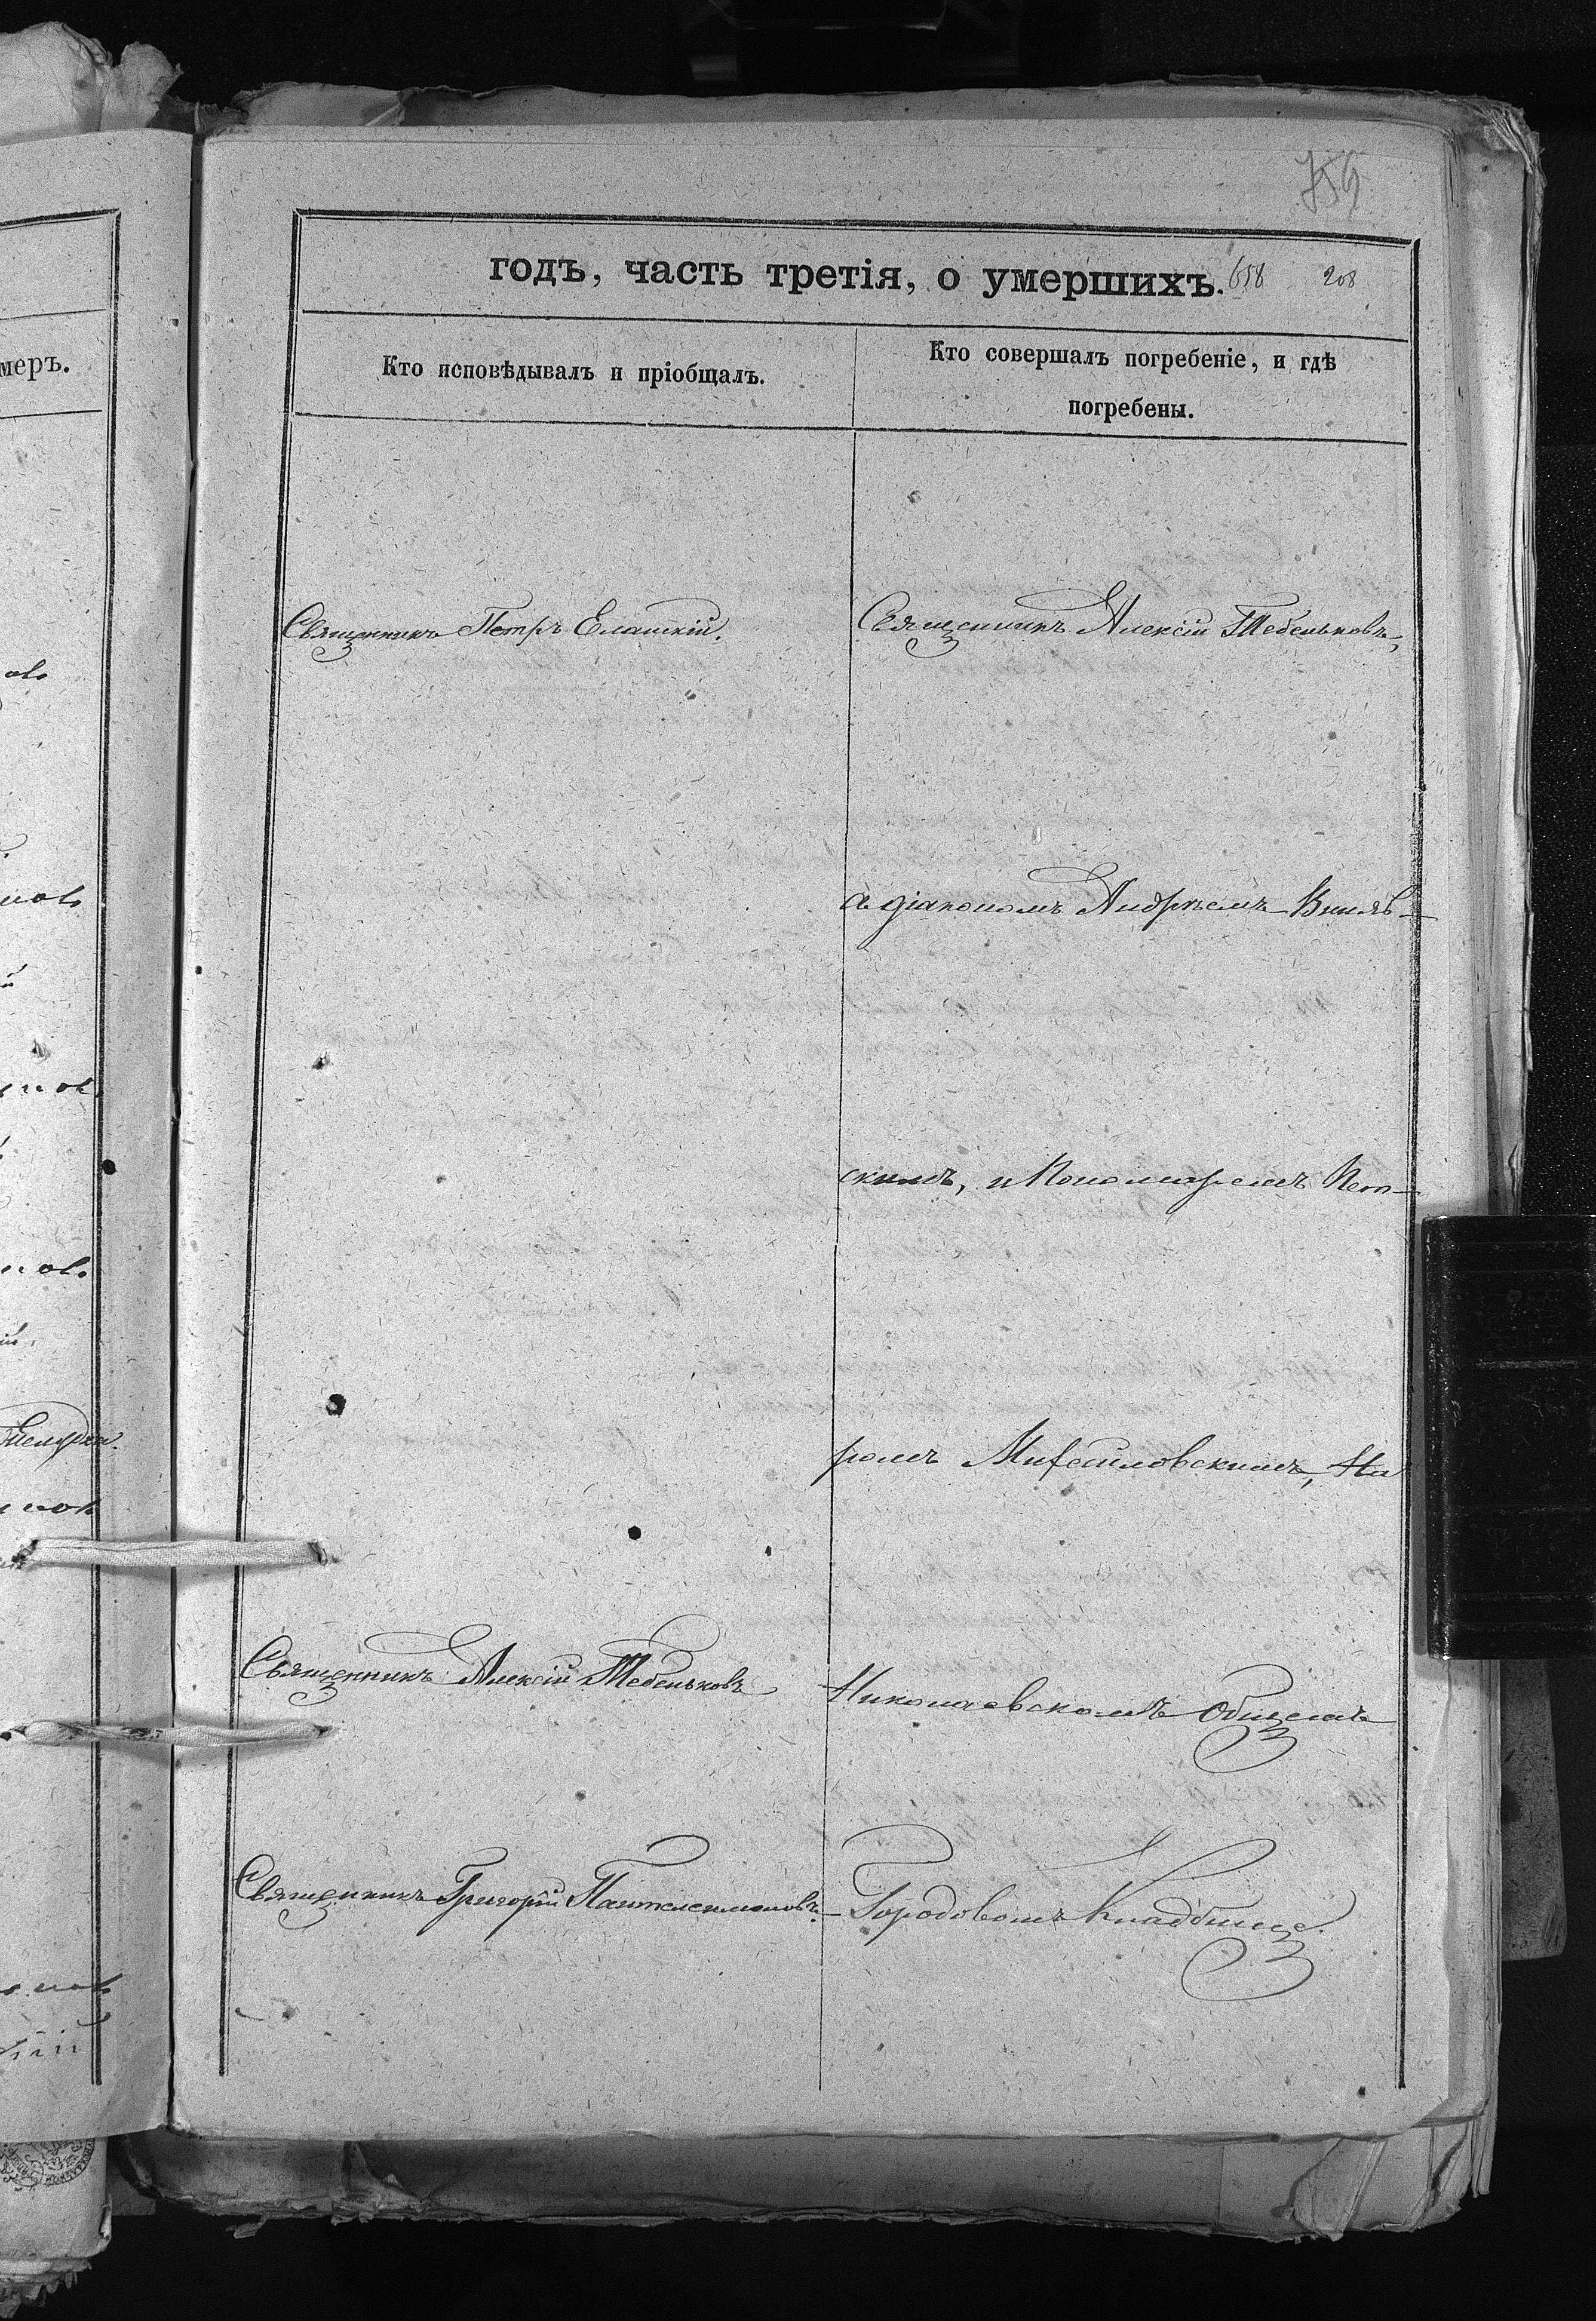 759
годъ, часть третія, о умершихъ. 658 208
меръ.
Кто исповѣдывалъ и пріобщалъ.
Кто совершалъ погребеніе, и гдѣ
погребены.
Священникъ Петръ Елашскій.
Священникъ Алексій Тебеньковъ,
діакономъ Андреемъ
скимъ, и Пономаремъ Пет-
ромъ На
Священникъ Алексій Тебеньковъ
Николаевскомъ Общемъ
Священникъ Григорій Пантелеимоновъ.
Городовомъ Кладбище.